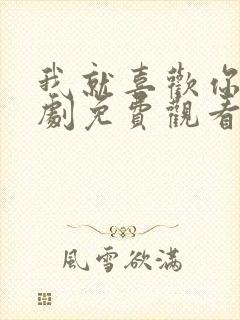 我就喜歡你
劇免費觀看
風雪欲滿